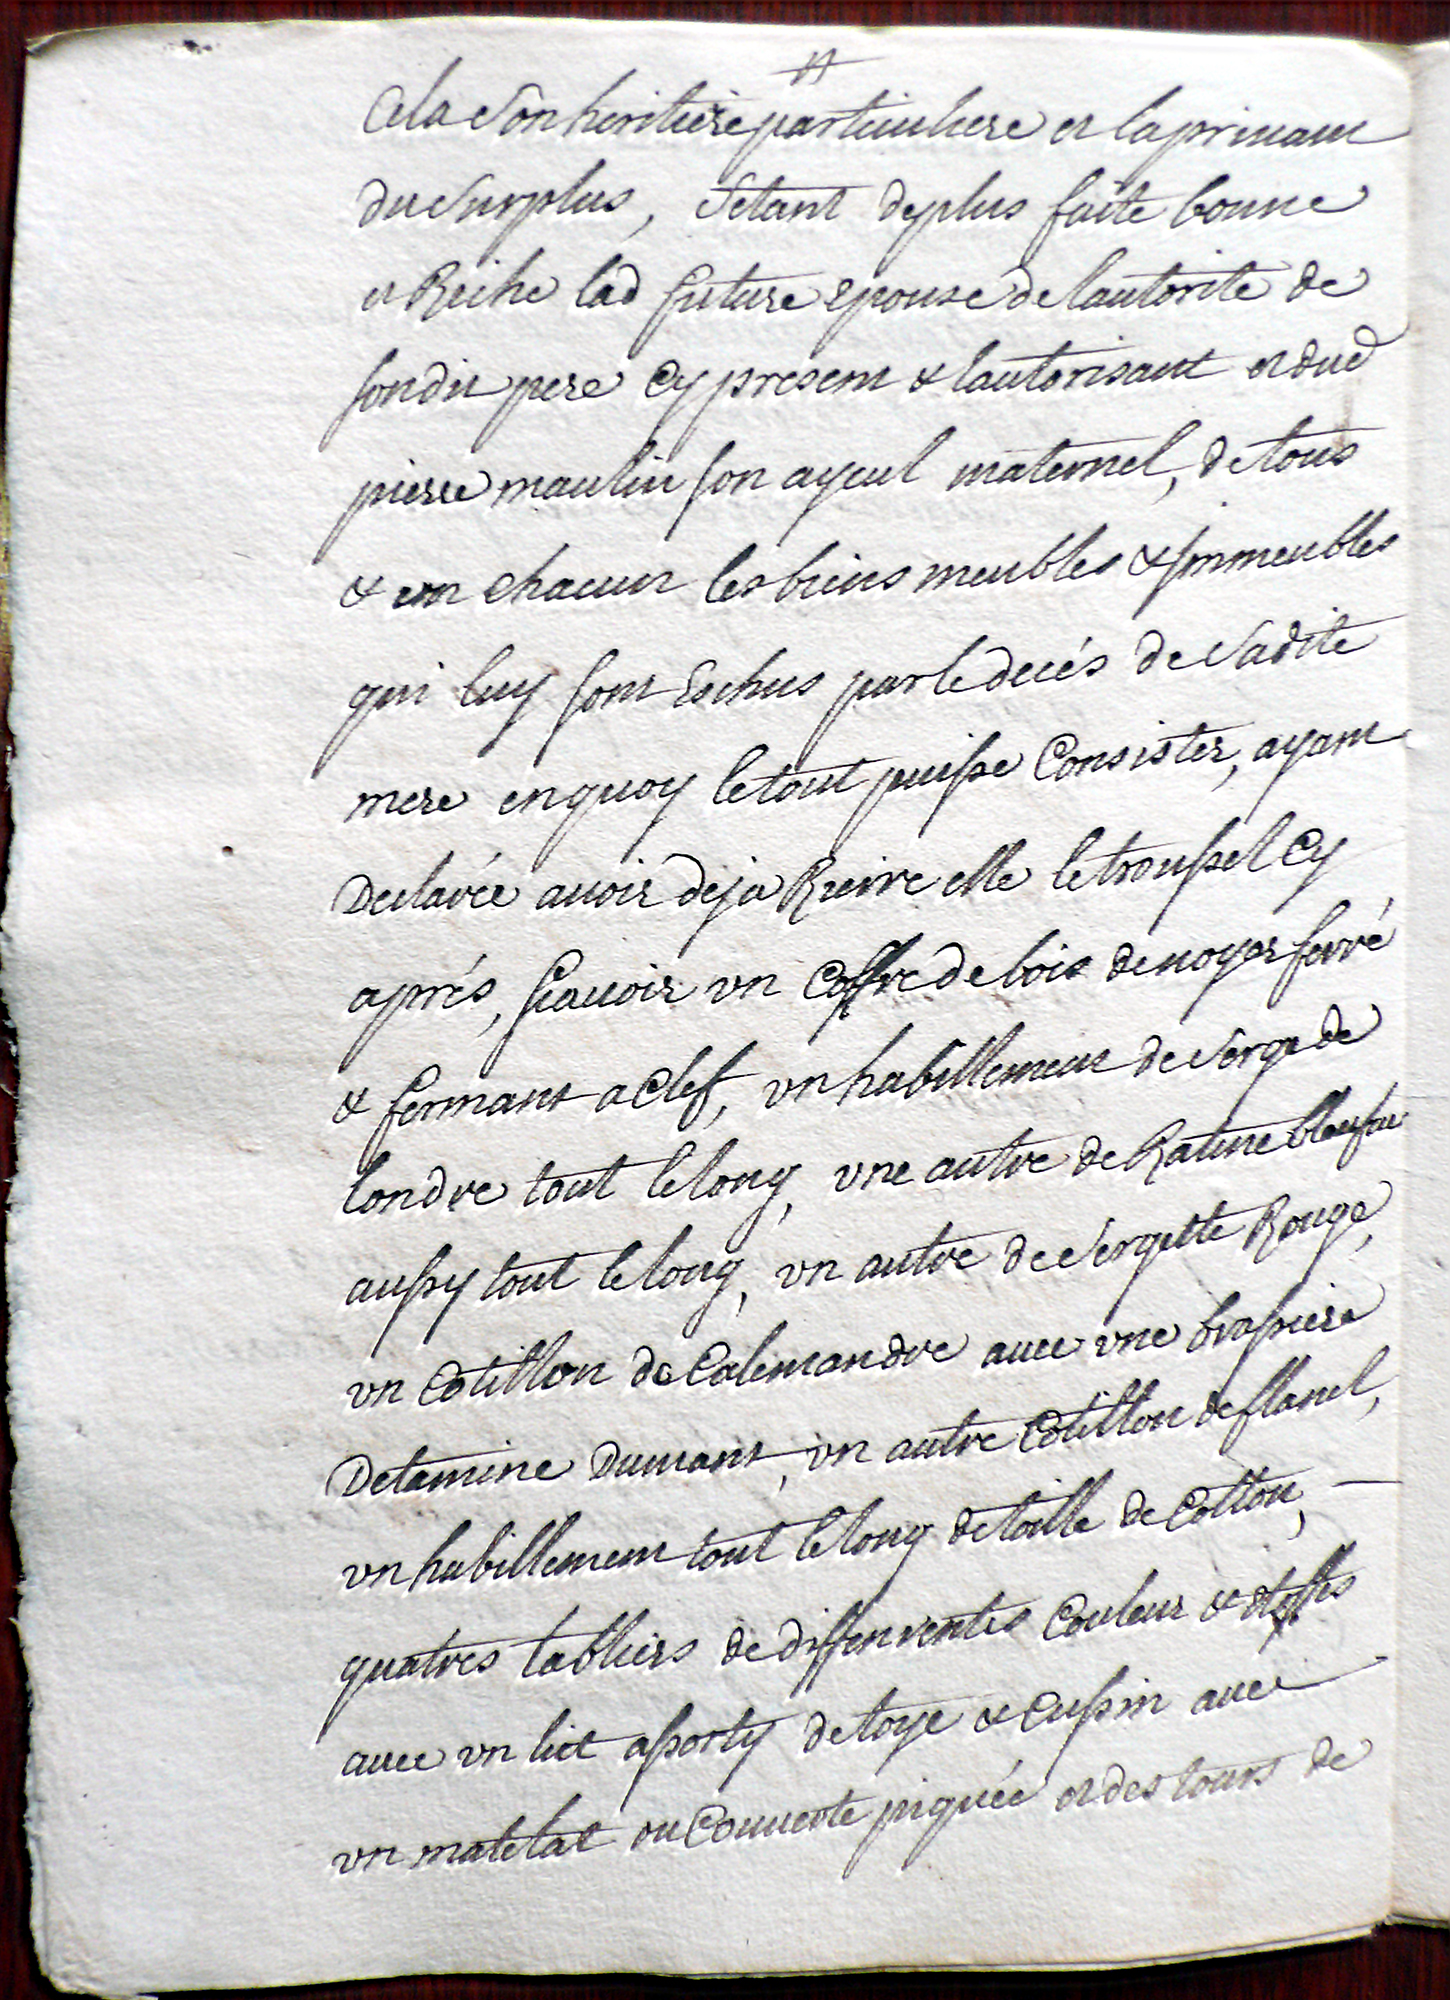 Cela Son heritiere particuliere et la privant
du Surplus, Setant deplus faite bonne
et Riche lad future epouse de lautorite de
son dit pere Cy present & lautorisant et dud
pierre maulin son ayeul maternel, de tous
& un chacun les biens meubles & Jmmeubles
qui luy sont Eschus par le decés de Sadite
mere en quoy le tout puisse Consister, ayant
Declarée avoir deja Rierre elle le troussel Cy
aprés, scavoir vn Coffre de bois de noyer ferré
& fermant a Clef, vn habillement de Serge de
londre tout le long, vne autre de Ratine bleufon
aussy tout le long, vn autre de Sergette Rouge,
vn Cotillon de Calemandre avec vne brassiere
Detamine Dumans, vn autre Cotillon de flanel,
vn habillement tout le long de toille de Cotton,
quatres tabliers de differrentes Couleur & etoffes
avec vn lict assorty de toye & Cussin avec
vn matelat ou Couverte piquée et des tours de